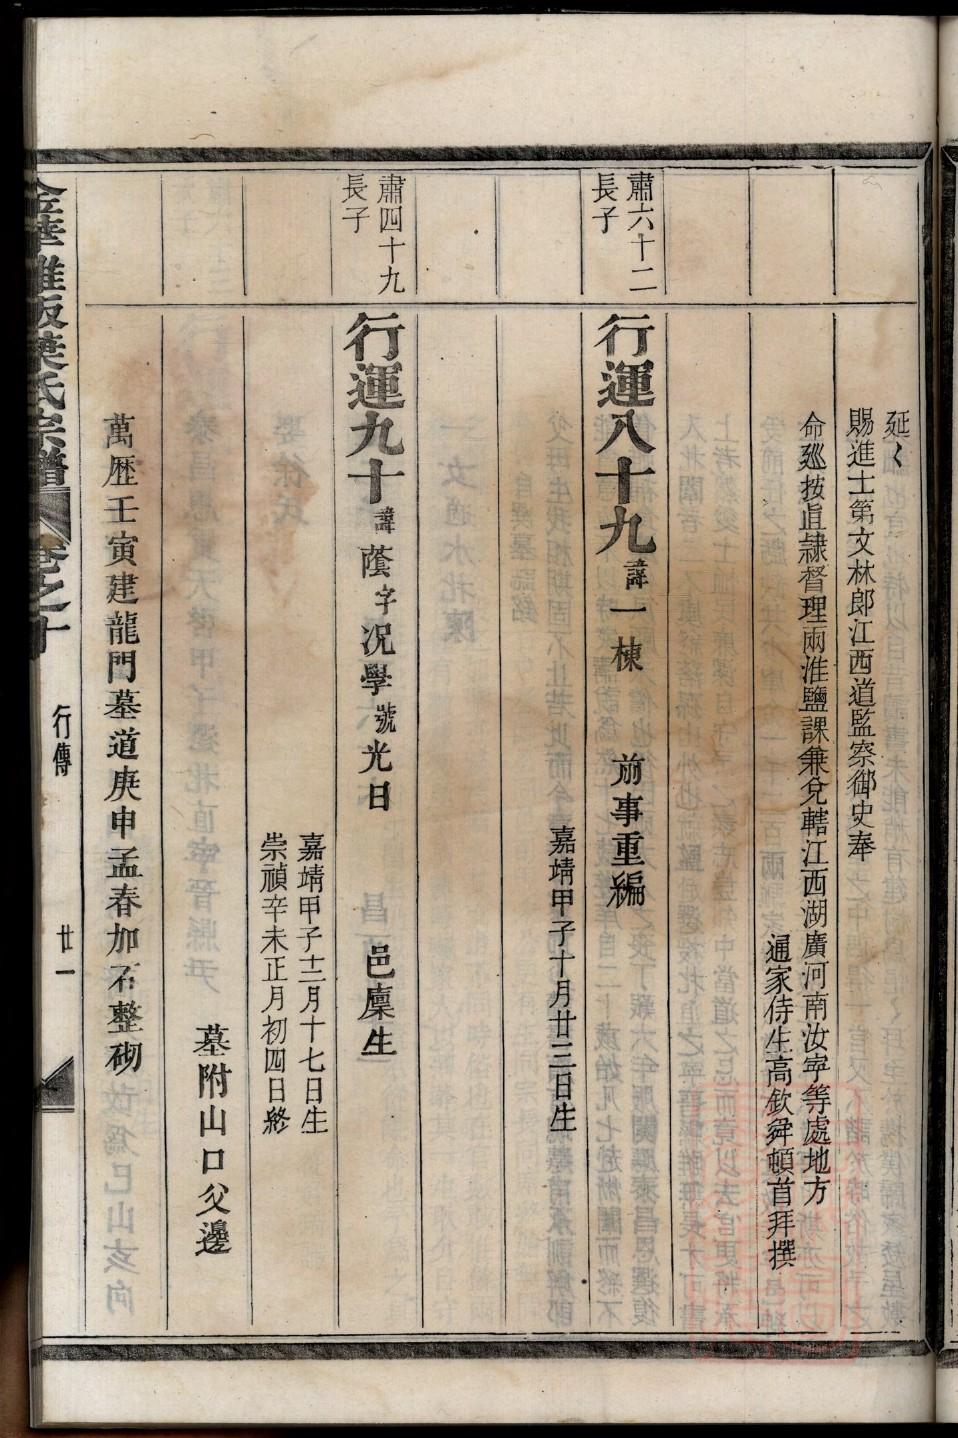 延〻
賜進士第文林郎江西道監察御史奉
命廵按直隸督理兩淮鹽課兼兌轄江西湖廣河南汝寧等處地方
通家侍生高欽舜頓首拜撰
肅六十二
長子
行運八十九諱一棟
前事重編
嘉靖甲子十月廿三日生
肅四十九
長子
行運九十諱蔭字况學號光日
邑廩生
嘉靖甲子十二月十七日生
崇禎辛未正月初四日終
墓附山口父邊
萬歷壬寅建龍門墓道庚申孟春加石整砌
金華雅畈葉氏宗譜
卷之十
行傳
廿一